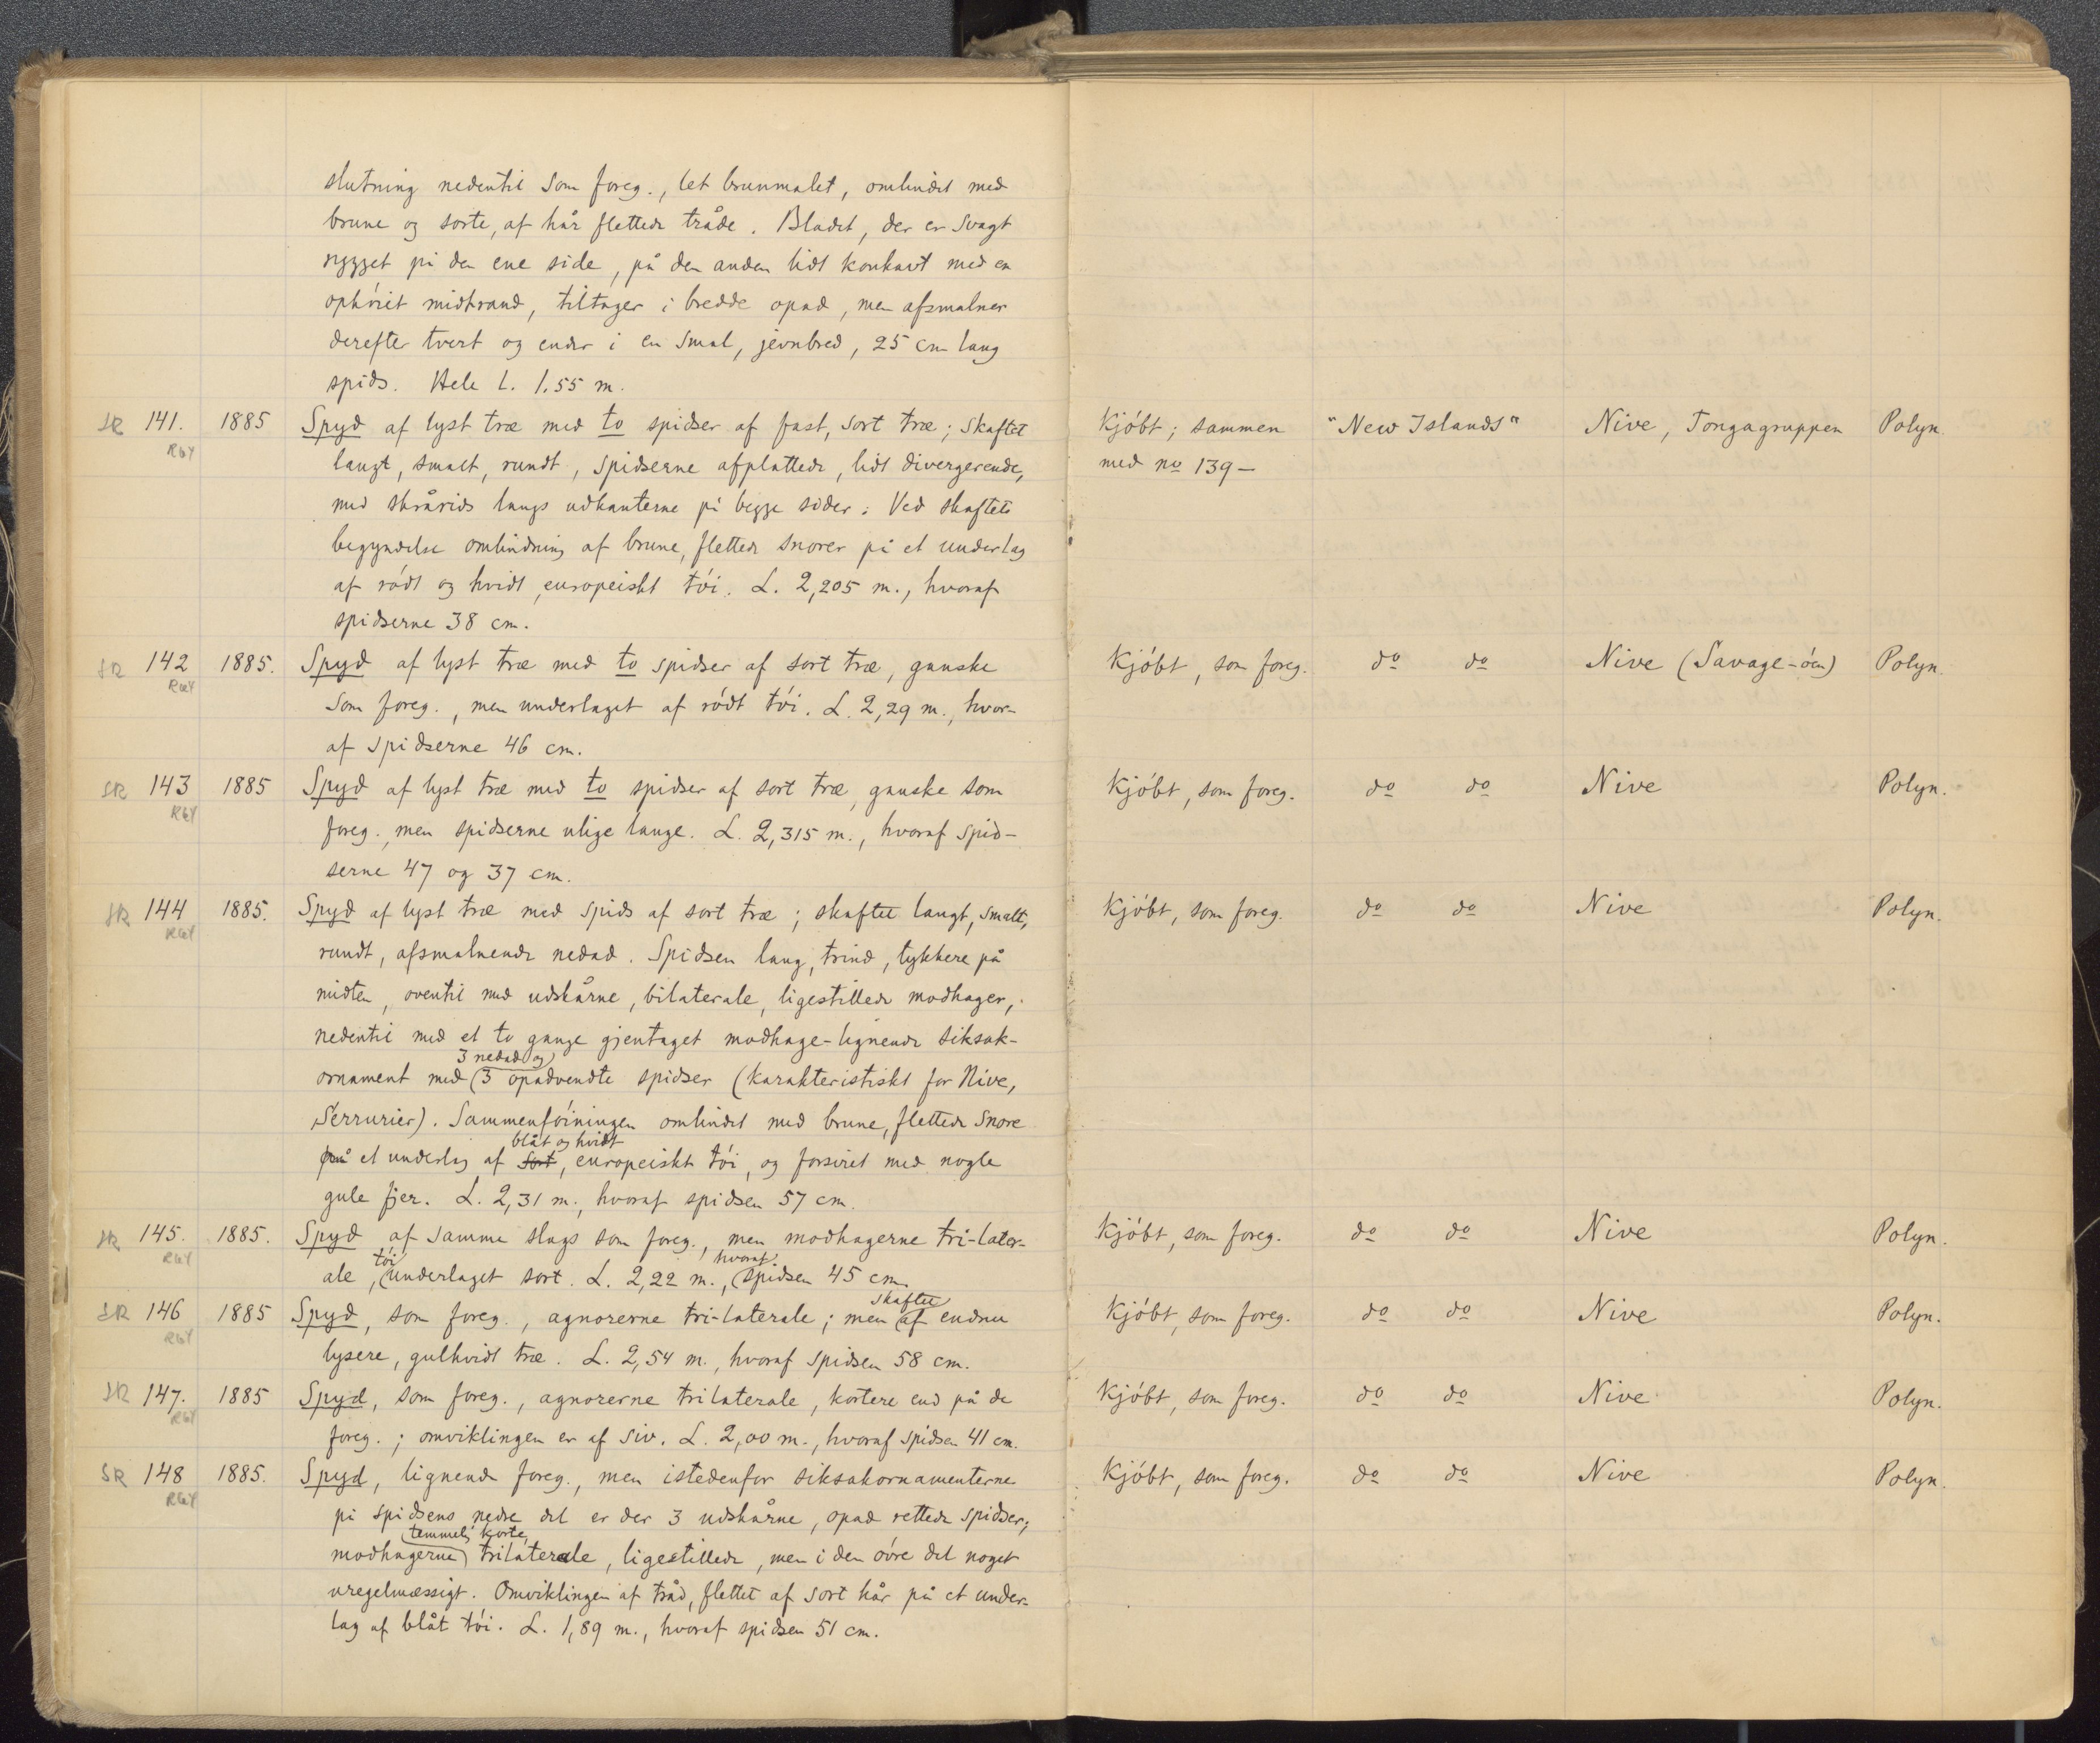 slutning nedentil som foreg., let brunmalet, omlindet med
brune og sorte, af hår flettede tråde. Bladet, der er svagt
rygget på den ene side, på den anden lidt konkavt med en
ophöiet midtrand, tiltager i bredde opad, men afsmalner
derefter tvert og ender i en smal, jevnbred, 25 cm lang
spids. Hele L. 1.55 m.
SR 141. 1885 Spyd af lyst træ med to spidser af fast, sort træ; Skaftet Kjöbt; sammen "New Islands" Nive, Tongagruppen Polyn.
R6Y langt, smalt, rundt, spidserne afplattede, lidt divergerende, med no 139 —
med skrårids langs udkanterne på begge sider. Ved skaftets
begyndelse omlindning af brune, flettede snorer på et underlag
af rödt og hvidt, europeiskt töi. L. 2,205 m., hvoraf
spidserne 38 cm.
SR 142 1885. Spyd af lyst træ med to spidser af sort træ, ganske Kjöbt, som foreg. do do Nive (Savage-öen) Polyn.
R6Y som foreg., men underlaget af rödt töi. L. 2,29 m., hvor-
af spidserne 46 cm.
SR 143 1885 Spyd af lyst træ med to spidser af sort træ, ganske som Kjöbt, som foreg. do do Nive Polyn.
R6Y foreg., men spidserne ulige lange. L. 2,315 m., hvoraf spid-
serne 47 og 37 cm.
SR 144 1885. Spyd af lyst træ med spids af sort træ; skaftet langt, smalt, Kjöbt, som foreg. do do Nive Polyn.
R6Y rundt, afsmalnende nedad. Spidsen lang, trind, tykkere på
midten, oventil med udskårne, bilaterale, ligestillede modhager,
nedentil med et to gange gjentaget modhage-lignende siksak-
3 nedad og
ornament med 3 opadvendte spidser (karakteristiskt for Nive,
Serrurier). Sammenföiningen omlindet med brune, flettede snore
blåt og hvidt
på et underlag af sort, europeiskt töi, og forsiret med nogle
gule fjer. L. 2,31 m., hvoraf spidsen 57 cm.
SR 145. 1885. Spyd af samme slags som foreg., men modhagerne tri-later- Kjöbt, som foreg. do do Nive Polyn.
töi hvoraf
R6Y ale, underlaget sort. L. 2,22 m., spidsen 45 cm.
skaftet
SR 146 1885 Spyd, som foreg., agnorerne tri-laterale; men af endnu Kjöbt, som foreg. do do Nive Polyn.
R6Y lysere, gulhvidt træ. L. 2,54 m., hvoraf spidsen 58 cm.
SR 147. 1885 Spyd, som foreg., agnorerne trilaterale, kortere end på de Kjöbt, som foreg. do do Nive Polyn.
R6Y foreg.; omviklingen er af siv. L. 2,00 m., hvoraf spidsen 41 cm.
SR 148 1885. Spyd, lignende foreg., men istedenfor siksakornamenterne Kjöbt, som foreg. do do Nive Polyn.
R6Y på spidsens nedre del er der 3 udskårne, opad rettede spidser;
temmeli korte,
modhagerne trilaterale, ligestillede, men i den övre del noget
uregelmæssigt. Omviklingen af tråd, flettet af sort hår på et under-
lag af blåt töi. L. 1,89 m., hvoraf spidsen 51 cm.